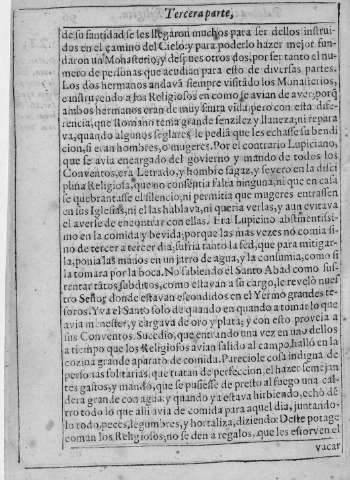 Tercera parte,
de su santidad se les llegaron muchos para ser dellos instrui-
dos en el camino del Cielo: y para poderlo hazer mejor fun-
daron un Monasterio, y despues otros dos, por ser tanto el nu-
mero de personas que acudian para esto de diversas partes.
Los dos hermanos andavã siempre visitãdo los Monasterios,
e instruyendo a los Religiosos en como se avian de aver, porq̃
ambos hermanos eran de muy santa vida, pero con esta dife-
rencia, que Romano tenia grande senzilez y llaneza, ni repara
va, quando algunos seglares le pediã que les echasse su bendi
cion, si eran hombres, o mugeres. Por el contrario Lupiciano,
que se avia encargado del govierno y mando de todos los
Conventos, era Letrado, y hombre sagaz, y severo en la disci
plina Religiosa, que no consentia falta ninguna, ni que en casa
se quebrantasse el silencio, ni permitia que mugeres entrassen
en sus Iglesias, ni el las hablava, ni queria verlas, y aun evitava
el averse de encontrar con ellas. Era Lupicino abstinentissi-
mo en la comida y bevida, porque las mas vezes no comia si-
no de tercer a tercer dia, sufria tanto la sed, que para mitigar-
la, ponia las manos en un jarro de agua, y la consumia, como si
la tomara por la boca. No pudiendo el Santo Abad como sus-
tentar tãtos subditos, como estavan a su cargo, le revelò nues
tro Señor donde estavan escondidos en el Yermo grandes te-
soros. Yva el Santo solo de quando en quando a tomar lo que
avia menester, y cargava de oro y plata, y con esto proveia a
sus Conventos. Sucedio, que entrando una vez en uno dellos
a tiempo que los Religiosos avian salido al campo, hallò en la
cozina grande aparato de comida. Pareciole cosa indigna de
personas solitarias, que tratan de perfeccion, el hazer semejan
tes gastos, y mandò, que se pusiesse de presto al fuego una cal-
dera grande con agua: y quando ya estava hirbiendo, echò de
tro todo lo que alli avia de comida para aquel dia, juntando-
lo todo, peces, legumbres, y hortaliza, diziendo: Deste potage
coman los Religiosos, no se den a regalos, que les estorven el
vacar